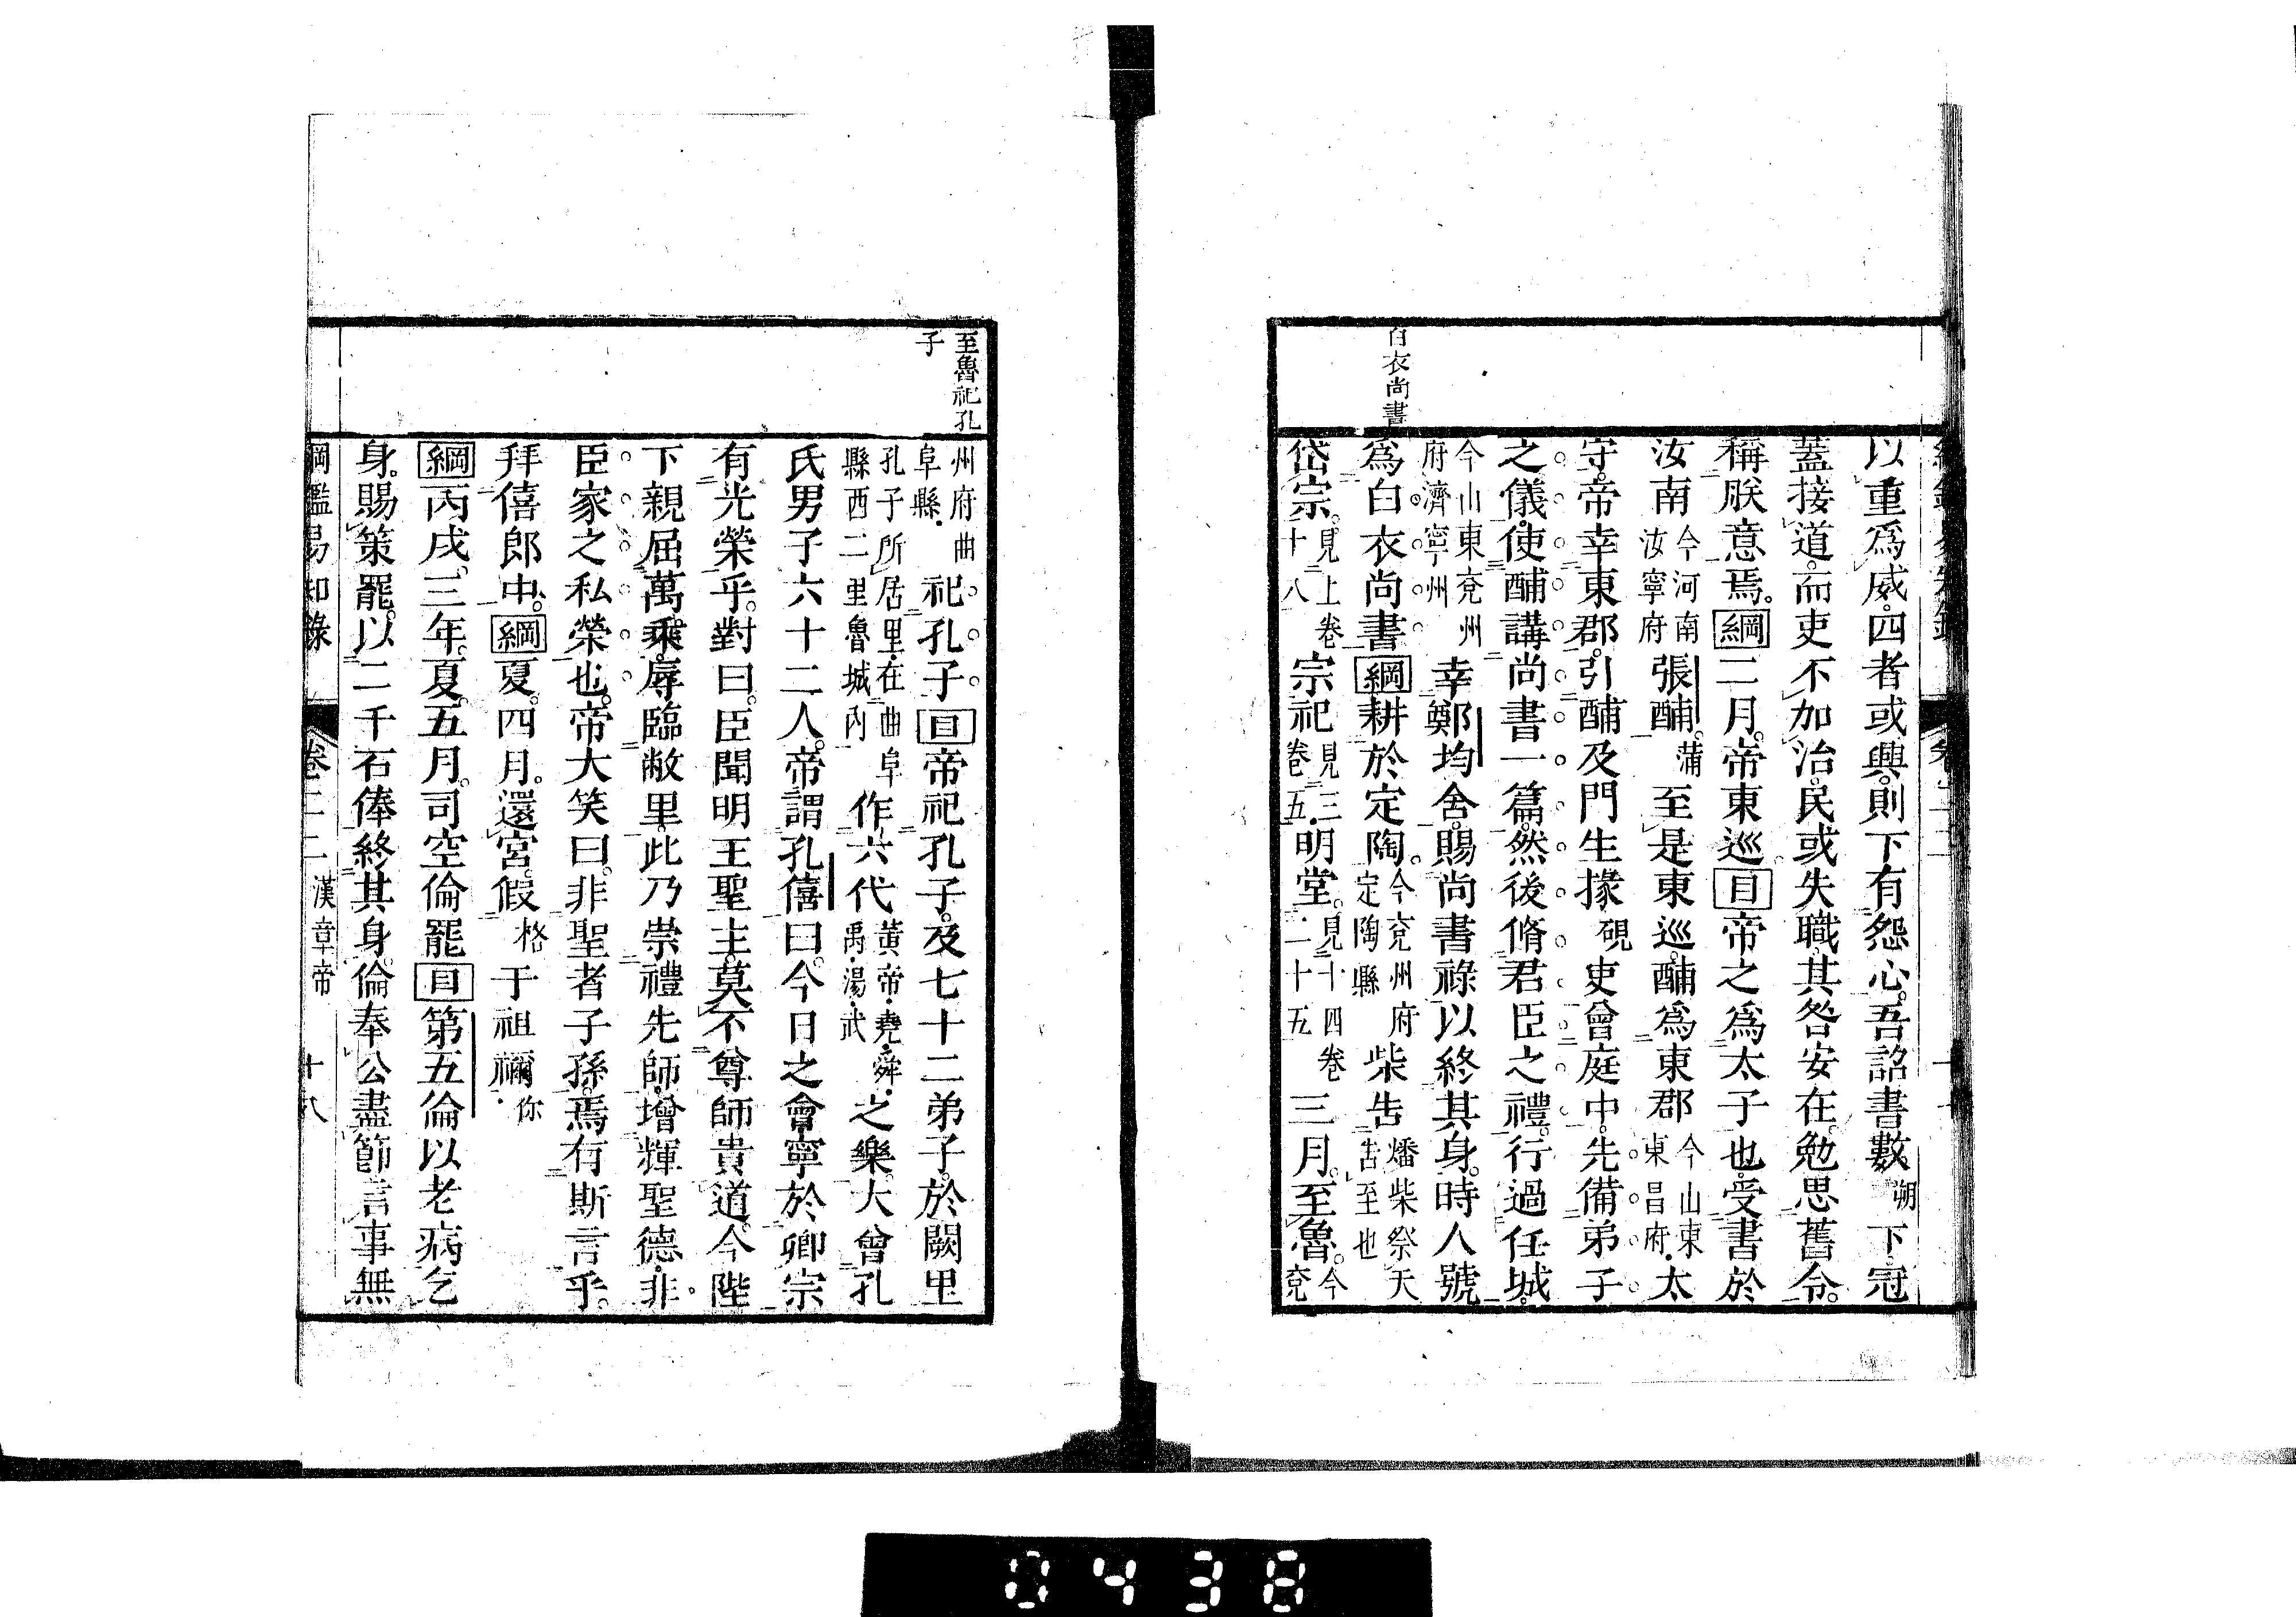 以重爲威。四者或興。則下有怨心。吾詔書數。朔下。冠
蓋接道。而吏不加治。民或失職。其咎安在。勉思舊令。
稱朕意焉。綱二月。帝東巡。目帝之爲太子也。受書於
汝南今河南汝寧府張酺。蒲至是東巡。酺爲東郡今山東東昌府.太
守。帝幸東郡。引酺及門生掾硯吏會庭中。先備弟子
之儀。使酺講尚書一篇。然後脩君臣之禮。行過任城。
今山東兗州府濟寧州幸鄭均舍。賜尚書祿以終其身。時人號
爲白衣尚書
白衣尚書綱耕於定陶。今兗州府定陶縣柴告燔柴祭天告至也
岱宗。見上卷十八宗祀見三卷五.明堂。見十四卷二十五三月。至魯。今兗
至魯祀孔子
州府曲阜縣.祀孔子目帝祀孔子。及七十二弟子。於闕里
孔子所居里.在曲阜縣西二里魯城內作六代黃帝.堯.舜.禹.湯.武之樂。大會孔
氏男子六十二人。帝謂孔僖曰。今日之會。寧於卿宗
有光榮乎。對曰。臣聞明王聖主。莫不尊師貴道。今陛
下親屈萬乘。辱臨敝里。此乃崇禮先師。增輝聖德。非
臣家之私榮也。帝大笑曰。非聖者子孫。焉有斯言乎。
拜僖郎中。綱夏。四月。還宮。假格于祖禰.你
綱丙戌。三年。夏。五月。司空倫罷目第五倫以老病乞
身。賜策罷。以二千石俸終其身。倫奉公盡節。言事無
綱鑑易知錄 卷二二 漢章帝 十八